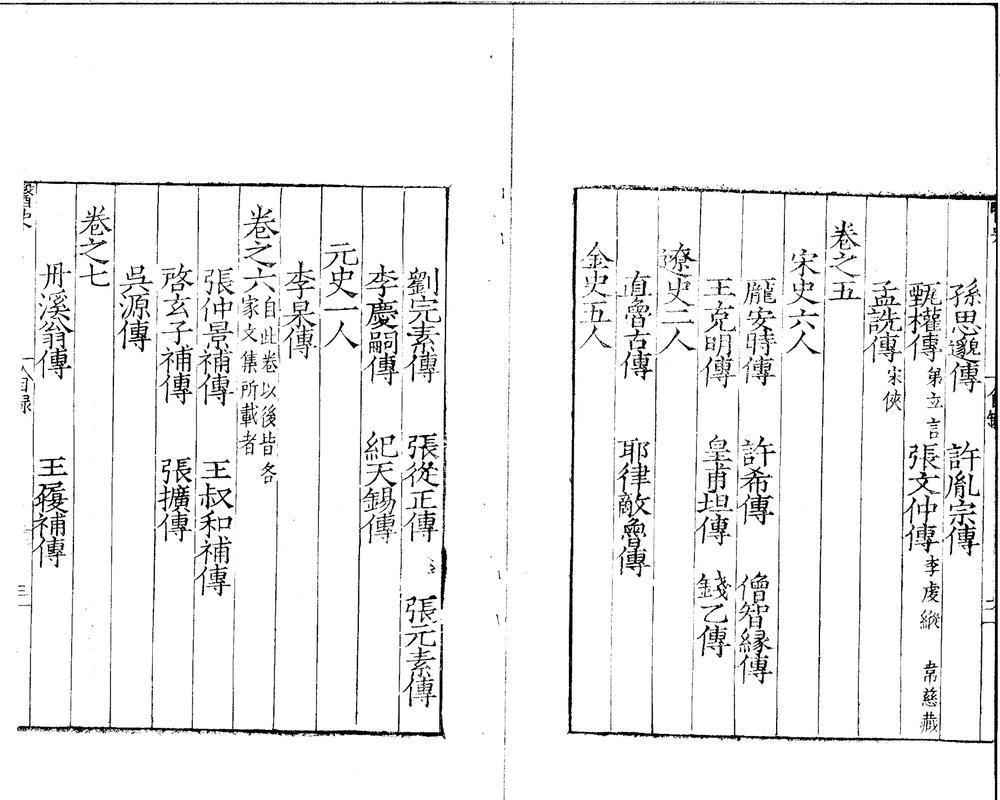 孫思邈傳　許胤宗傳
甄權傳 弟立言　張文仲傳 李虔縱　韋慈藏
孟詵傳 宋俠
卷之五
宋史六人
龐安時傳　許希傳　僧智緣傳
王克明傳　皇甫坦傳　錢乙傳
遼史二人
直魯古傳　耶律敵魯傳
金史五人
劉完素傳　張從正傳　張元素傳
李慶嗣傳　紀天錫傳
元史一人
李杲傳
卷之六 自此卷以後皆各家文集所載者
張仲景補傳　王叔和補傳
啓玄子補傳　張擴傳
吳源傳
卷之七
丹溪翁傳　王履補傳
醫史
目録
三